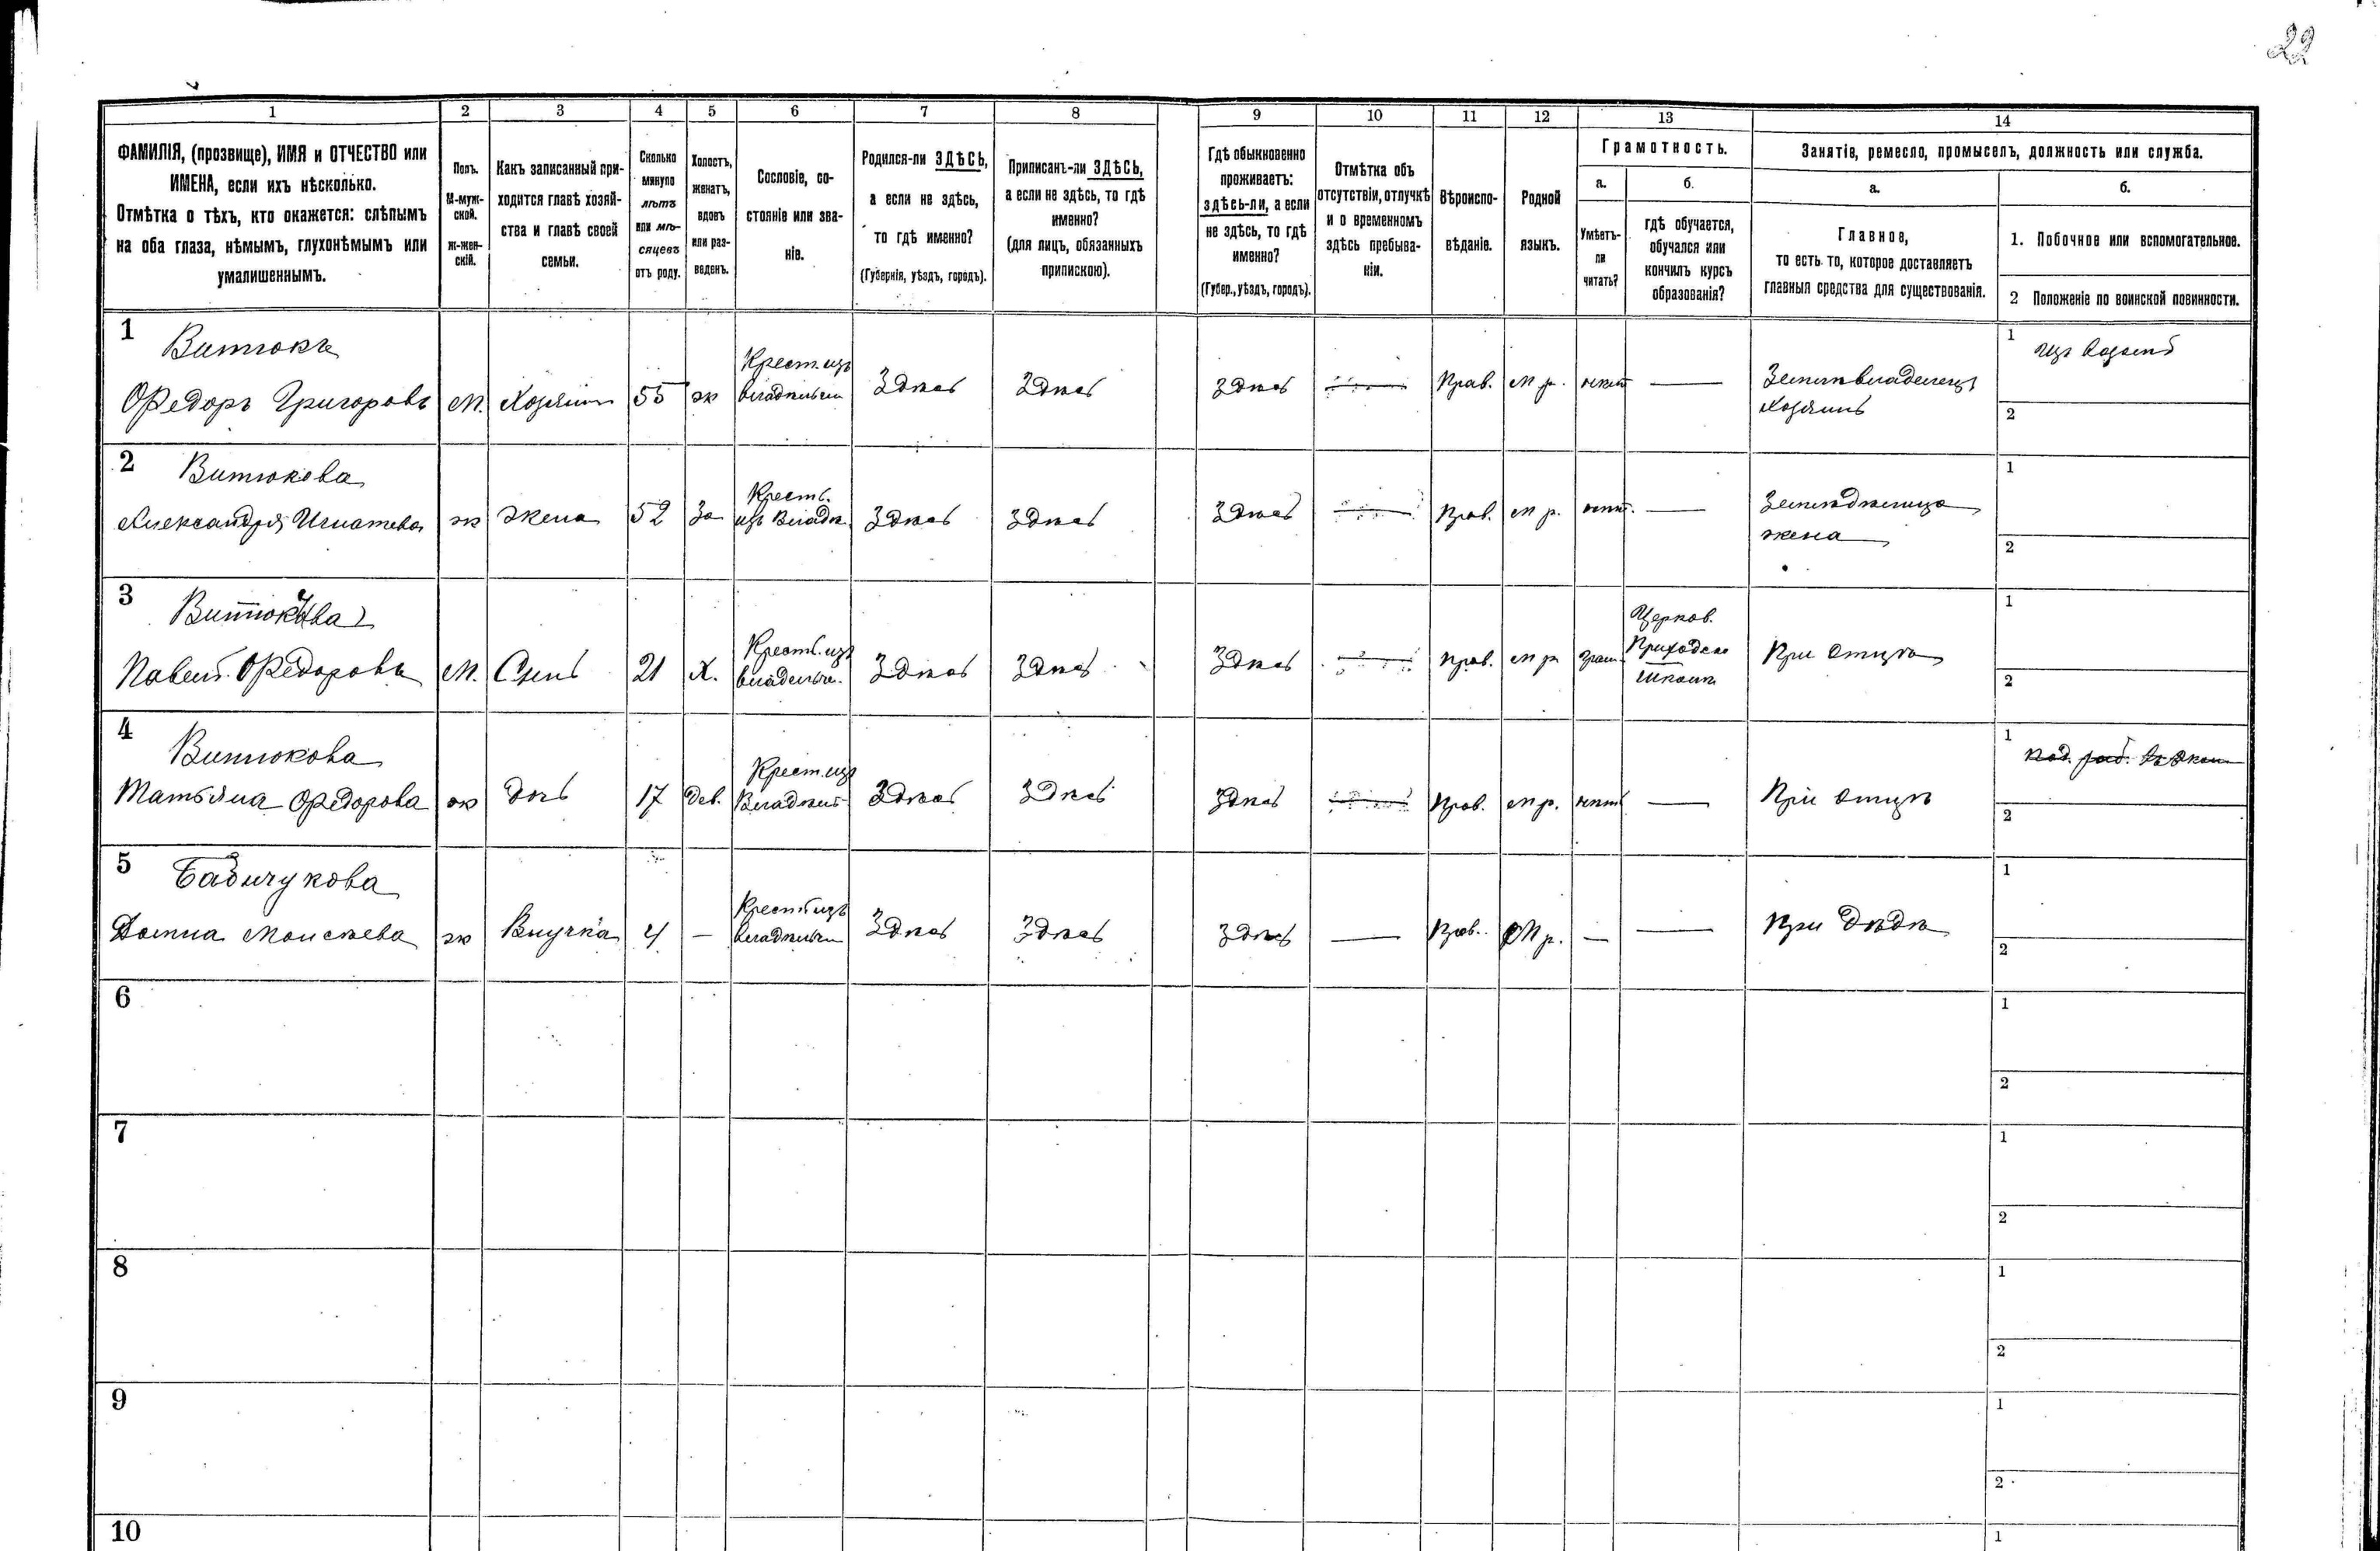 22
1 2 3 4 5 6 7 8 9 10 11 12 13 14
ФАМИЛІЯ, (прозвище), ИМЯ и ОТЧЕСТВО или
ИМЕНА, если ихъ нѣсколько.
Отмѣтка о тѣхъ, кто окажется: слѣпымъ
на оба глаза, нѣмымъ, глухонѣмымъ или
умалишеннымъ.
Полъ.
М-муж-
ской.
Ж-жен-
скій.
Какъ записанный при-
ходится главѣ хозяй-
ства и главѣ своей
семьи.
Сколько
минуло
лѣтъ
или мѣ-
сяцевъ
отъ роду.
Холостъ,
женатъ,
вдовъ
или раз-
веденъ.
Сословіе, со-
стояніе или зва-
ніе.
Родился-ли ЗДѢСЬ,
а если не здѣсь,
то гдѣ именно?
(Губернія, уѣздъ, городъ).
Приписанъ-ли ЗДѢСЬ,
а если не здѣсь, то гдѣ
именно?
(для лицъ, обязанныхъ
припискою).
Гдѣ обыкновенно
проживаетъ:
здѣсь-ли, а если
не здѣсь, то гдѣ
именно?
(Губер., уѣздъ, городъ).
Отмѣтка объ
отсутствіи, отлучкѣ
и о временномъ
здѣсь пребыва-
ніи.
Вѣроиспо-
вѣданіе.
Родной
языкъ.
Грамотность.
а.
Умѣетъ-
ли
читать?
б.
гдѣ обучается,
обучался или
кончилъ курсъ
образованія?
Занятіе, ремесло, промыселъ, должность или служба.
а.
Главное,
то есть то, которое доставляетъ
главныя средства для существованія.
б.
1. Побочное или вспомогательное.
2 Положеніе по воинской повинности.
1
Витюкъ
Ѳедоръ Григоровъ
М.
Хозяинъ
55
ж
Крест. изъ
владѣльч
Здѣсь
Здѣсь
Здѣсь
Прав.
м р.
нѣтъ
Землевладелецъ
хозяинъ
1
2
2
Витюкова
Александра Игнатева
ж
жена
52
За
Крестъ.
изъ Владѣ.
Здѣсь
Здѣсь
Здѣсь
Прав.
м р.
нѣтъ.
жена
1
2
3
Павелъ Ѳедоровъ
М.
Сынъ
21
Х.
Крестъ. изъ
владельч.
Здѣсь
Здѣсь
Здѣсь
Прав.
м р
грам
Церков.
Приходско
школѣ
При отцѣ
1
2
4
Витюкова
Татьяна Ѳедорова
ж
Дочь
17
Дев.
Крест. изъ
Владѣль
Здѣсь
Здѣсь
Здѣсь
Прав.
м р.
нѣтъ
При отцѣ
1
2
5
Бабичукова
Домна Моисѣева
ж
Внучка
4
—
Крестъ изъ
владѣльч
Здѣсь
Здѣсь
Здѣсь
Прав.
М р.
—
При Дѣдѣ
1
2
6
1
2
7
1
2
8
1
2
9
1
2
10
1